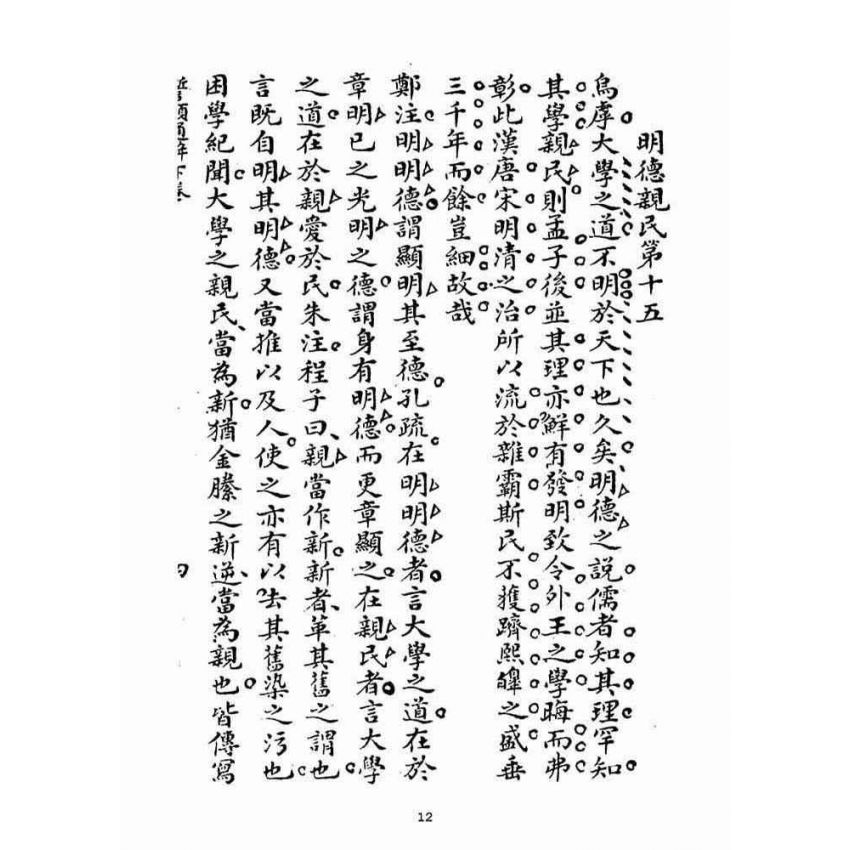 明德親民第十五
烏虖大學之道不明於天下也久矣明德之說儒者知其理罕知
其學親民則孟子後並其理亦鮮有發明致令外王之學晦而弗
彰此漢唐宋明清之治所以流於雜霸斯民不獲躋熙皞之盛垂
三千年而餘豈細故哉
鄭注明明德謂顯明其至德孔疏在明明德者言大學之道在於
章明己之光明之德謂身有明德而更章顯之在親民者言大學
之道在於親愛於民朱注程子曰親當作新新者革其舊之謂也
言既自明其明德又當推以及人使之亦有以去其舊染之污也
困學紀聞大學之親民當為新猶金縢之新逆當為親也皆傳寫
下卷
12